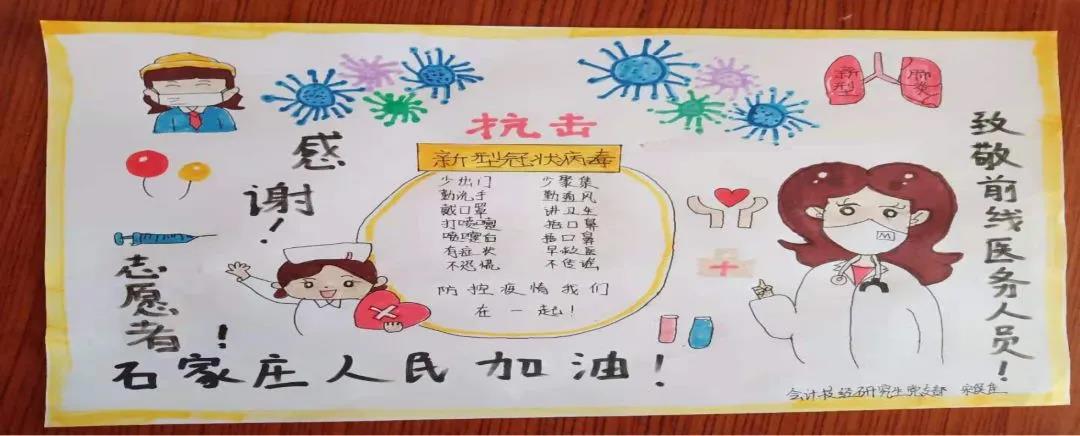 抗击
新型冠状病毒
少出门 少聚集
勤洗手 勤通风
戴口罩 讲卫生
打喷嚏 捂口鼻
捂口鼻
有症状 早就医
不恐慌 不传谣
防控疫情我们
在一起！
新型 肺炎
感谢！
志愿者！
致敬前线医务人员！
M
石家庄人民加油！
会计技经研究生党支部